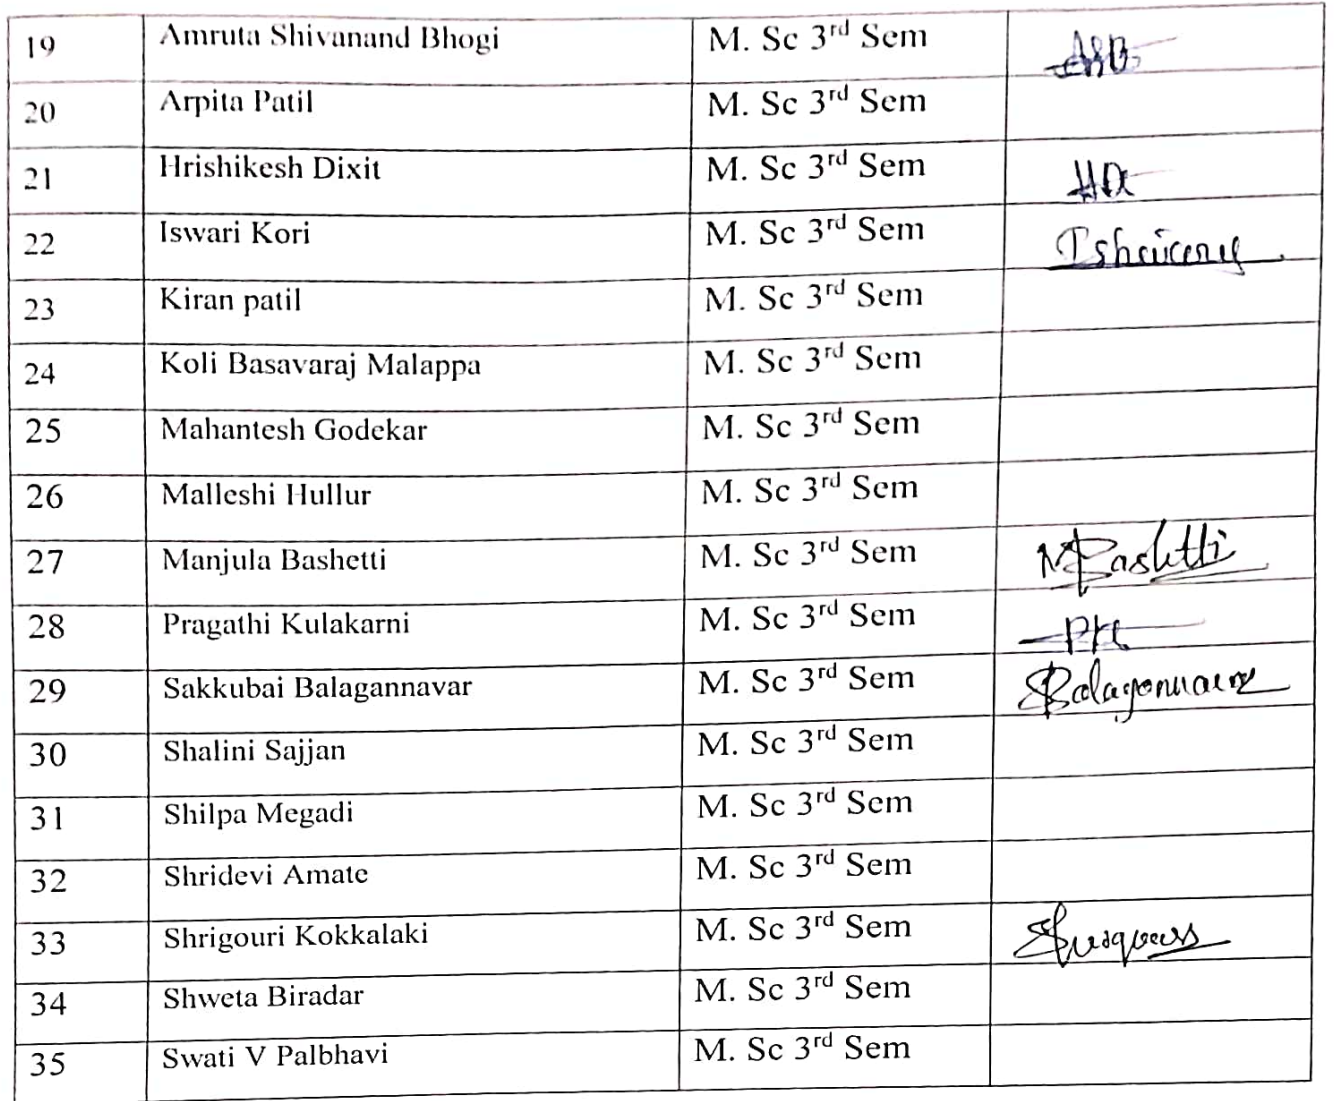 19 Amruta Shivanand Bhogi M. Sc 3rd Sem ASB
20 Arpita Patil M. Sc 3rd Sem
21 Hrishikesh Dixit M. Sc 3rd Sem HD
22 Iswari Kori M. Sc 3rd Sem
23 Kiran patil M. Sc 3rd Sem
24 Koli Basavaraj Malappa M. Sc 3rd Sem
25 Mahantesh Godekar M. Sc 3rd Sem
26 Malleshi Hullur M. Sc 3rd Sem
27 Manjula Bashetti M. Sc 3rd Sem MBashetti
28 Pragathi Kulakarni M. Sc 3rd Sem PK
29 Sakkubai Balagannavar M. Sc 3rd Sem
30 Shalini Sajjan M. Sc 3rd Sem
31 Shilpa Megadi M. Sc 3rd Sem
32 Shridevi Amate M. Sc 3rd Sem
33 Shrigouri Kokkalaki M. Sc 3rd Sem
34 Shweta Biradar M. Sc 3rd Sem
35 Swati V Palbhavi M. Sc 3rd Sem